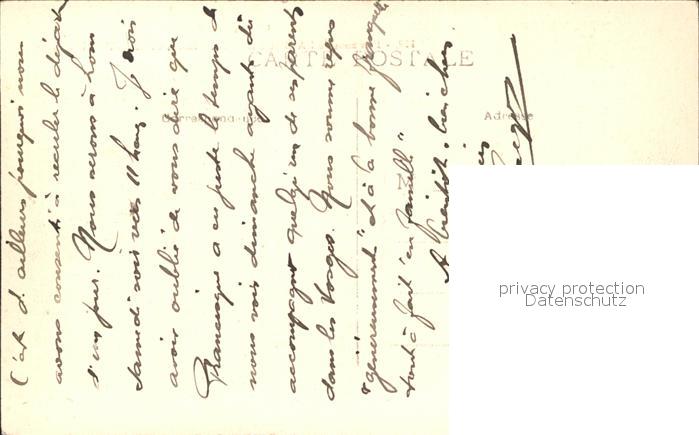 CARTE POSTALE
Correspondance
Adresse
C'est d'ailleurs pourquoi nous
avons consenti à reculer le départ
d'un jour. Nous serons à Lyon
samedi soir vers 11 heures. Je crois
avoir oublié de vous dire que
Francisque a eu juste le temps de
nous voir dimanche ayant dû
accompagner quelqu'un de ses parents
dans les Vosges. Nous sommes reçus
"généreusement" et à la bonne franquette
tout à fait "en famille."
A bientôt, bien chers
privacy protection
Datenschutz